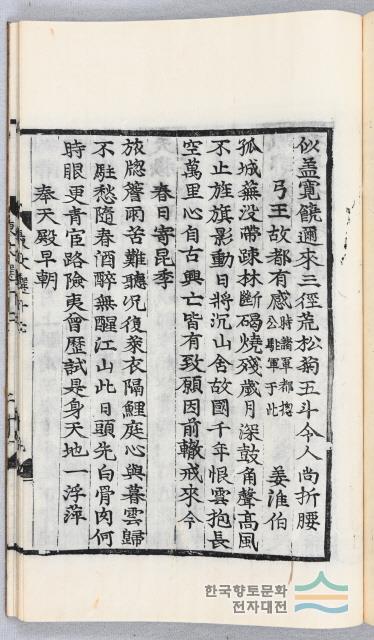 似孟寛饒邇來三徑荒松菊五斗令人尚折腰
弓王故都有感時諸軍都揔公駐軍于此 姜淮伯
孤城蕪没帶疎林斷碣燒殘歲月深鼓角聲高風
不止旌旗影動日將沉山舍故國千年恨雲抱長
空萬里心自古興亡皆有致願因前轍戒來今
春日寄昆季
旅牕簷雨苦難聽况復萊衣隔鯉庭心與暮雲歸
不駐愁隨春酒醉無醒江山此日頭先白骨肉何
時眼更青宦路險夷曾歷試是身天地一浮萍
奉天殿早朝
한국향토문화
전자대전